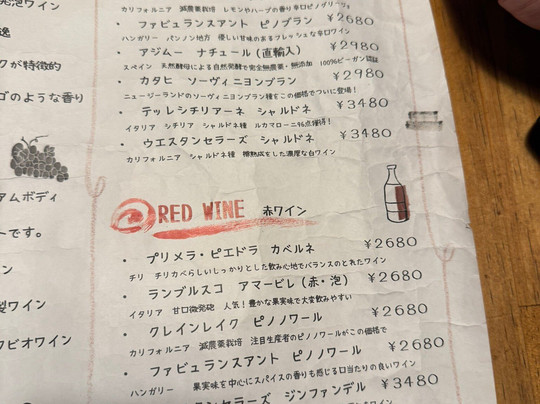 発泡ワイン
カリフォルニア 減農薬栽培 レモンやハーブの香り辛口ピノグリージョ
・ ファビュランスアント ピノブラン ¥2680
ハンガリー パンノン地方 優しい甘味のあるフレッシュな辛口ワイン
・ アジムー ナチュール(直輸入) ¥2980
スペイン 天然酵母による自然発酵で完全無農薬・無添加 100%ビーガン認証
・ カタヒ ソーヴィニヨンブラン ¥2980
ニュージーランドのソーヴィニヨンブラン種をこの価格でついに登場!
・ テッレシチリアーネ シャルドネ ¥3480
イタリア シチリア シャルドネ種 ルカマローニ96点獲得!
・ ウエスタンセラーズ シャルドネ ¥3480
カリフォルニア シャルドネ種 樽熟成をした濃厚な白ワイン
クが特徴的
ゴのような香り
アムボディ
ーです。
ン
製ワイン
クビオワイン
RED WINE 赤ワイン
・ プリメラ・ピエドラ カベルネ ¥2680
チリ チリカベらしいしっかりとした飲み心地でバランスのとれたワイン
・ ランブルスコ アマービレ(赤・泡) ¥2680
イタリア 甘口微発砲 人気!豊かな果実味で大変飲みやすい
・ クレインレイク ピノノワール ¥2680
カリフォルニア 減農薬栽培 注目生産者のピノノワールがこの価格で
・ ファビュランスアント ピノノワール ¥2680
ハンガリー 果実味を中心にスパイスの香りも感じる口当たりの良いワイン
ンセラーズ ジンファンデル ¥3480